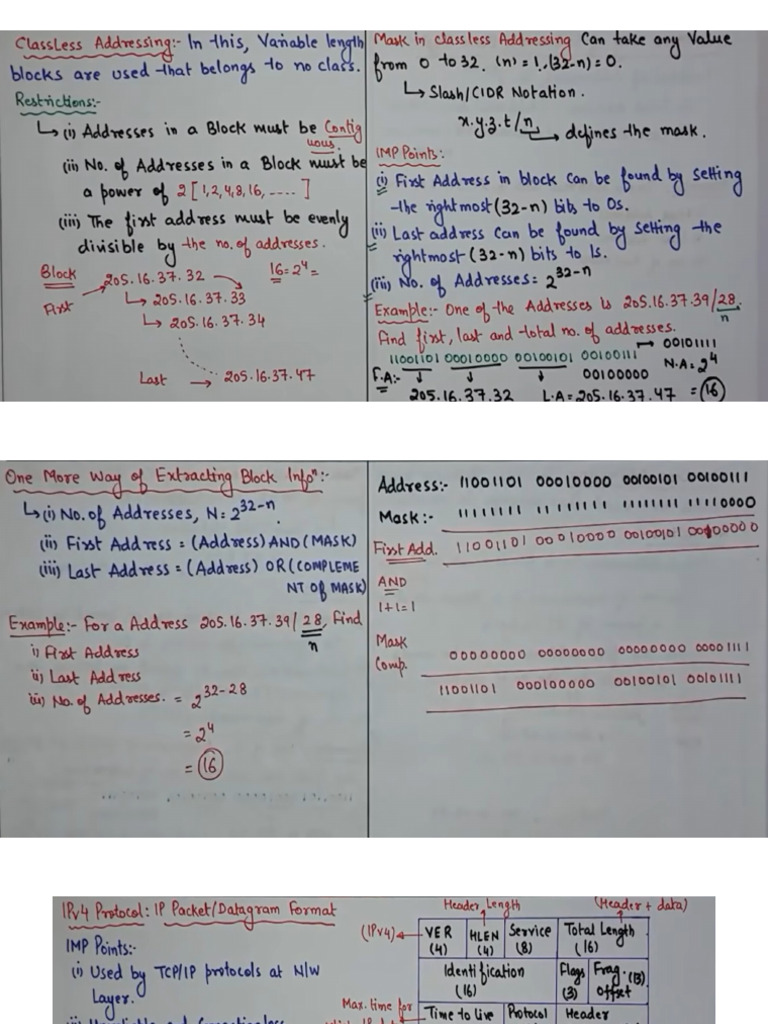 ClassLess Addressing:- In this, Variable length
blocks are used that belongs to no class.
Restrictions:-
↳ (i) Addresses in a Block must be Contig
uous.
(ii) No. of Addresses in a Block must be
a power of 2 [1,2,4,8,16, .....]
(iii) The first address must be evenly
divisible by the no. of addresses.
Block
16=2⁴=
205.16.37.32
First
↳ 205.16.37.33
↳ 205.16.37.34
Last → 205.16.37.47
Mask in classless Addressing Can take any Value
from 0 to 32. (n)=1, (32-n)=0.
↳ Slash/CIDR Notation.
x.y.z.t/n → defines the mask.
IMP Points:
(i) First Address in block Can be found by setting
the rightmost (32-n) bits to 0s.
(ii) Last address Can be found by setting the
rightmost (32-n) bits to 1s.
(iii) No. of Addresses = 2³²⁻ⁿ
Example:- One of the Addresses is 205.16.37.39/28.
n
find first, last and total no. of addresses.
→ 00101111
11001101 00010000 00100101 00100111
N.A = 2⁴
F.A:- 00100000
205.16.37.32 L.A = 205.16.37.47 = 16
One More Way of Extracting Block Infoⁿ:-
↳ (i) No. of Addresses, N = 2³²⁻ⁿ
(ii) First Address = (Address) AND (MASK)
(iii) Last Address = (Address) OR (COMPLEME
NT OF MASK)
Example:- For a Address 205.16.37.39/28, find
n
i) First Address
ii) Last Address
iii) No. of Addresses. = 2³²⁻²⁸
= 2⁴
= 16
Address:- 11001101 00010000 00100101 00100111
Mask:- 11111111 11111111 11111111 11110000
First Add. 11001101 00010000 00100101 00100000
AND
1+1=1
Mask
Comp. 00000000 00000000 00000000 00001111
11001101 000100000 00100101 00101111
IPv4 Protocol: IP Packet/Datagram Format
IMP Points:-
(i) Used by TCP/IP protocols at N/W
Layer.
Header Length
(Header + data)
(IPv4) ← VER (4) HLEN (4) Service (8) Total Length (16)
Identification (16) Flags (3) Frag. Offset (13)
Max. time for
Time to live Protocol Header